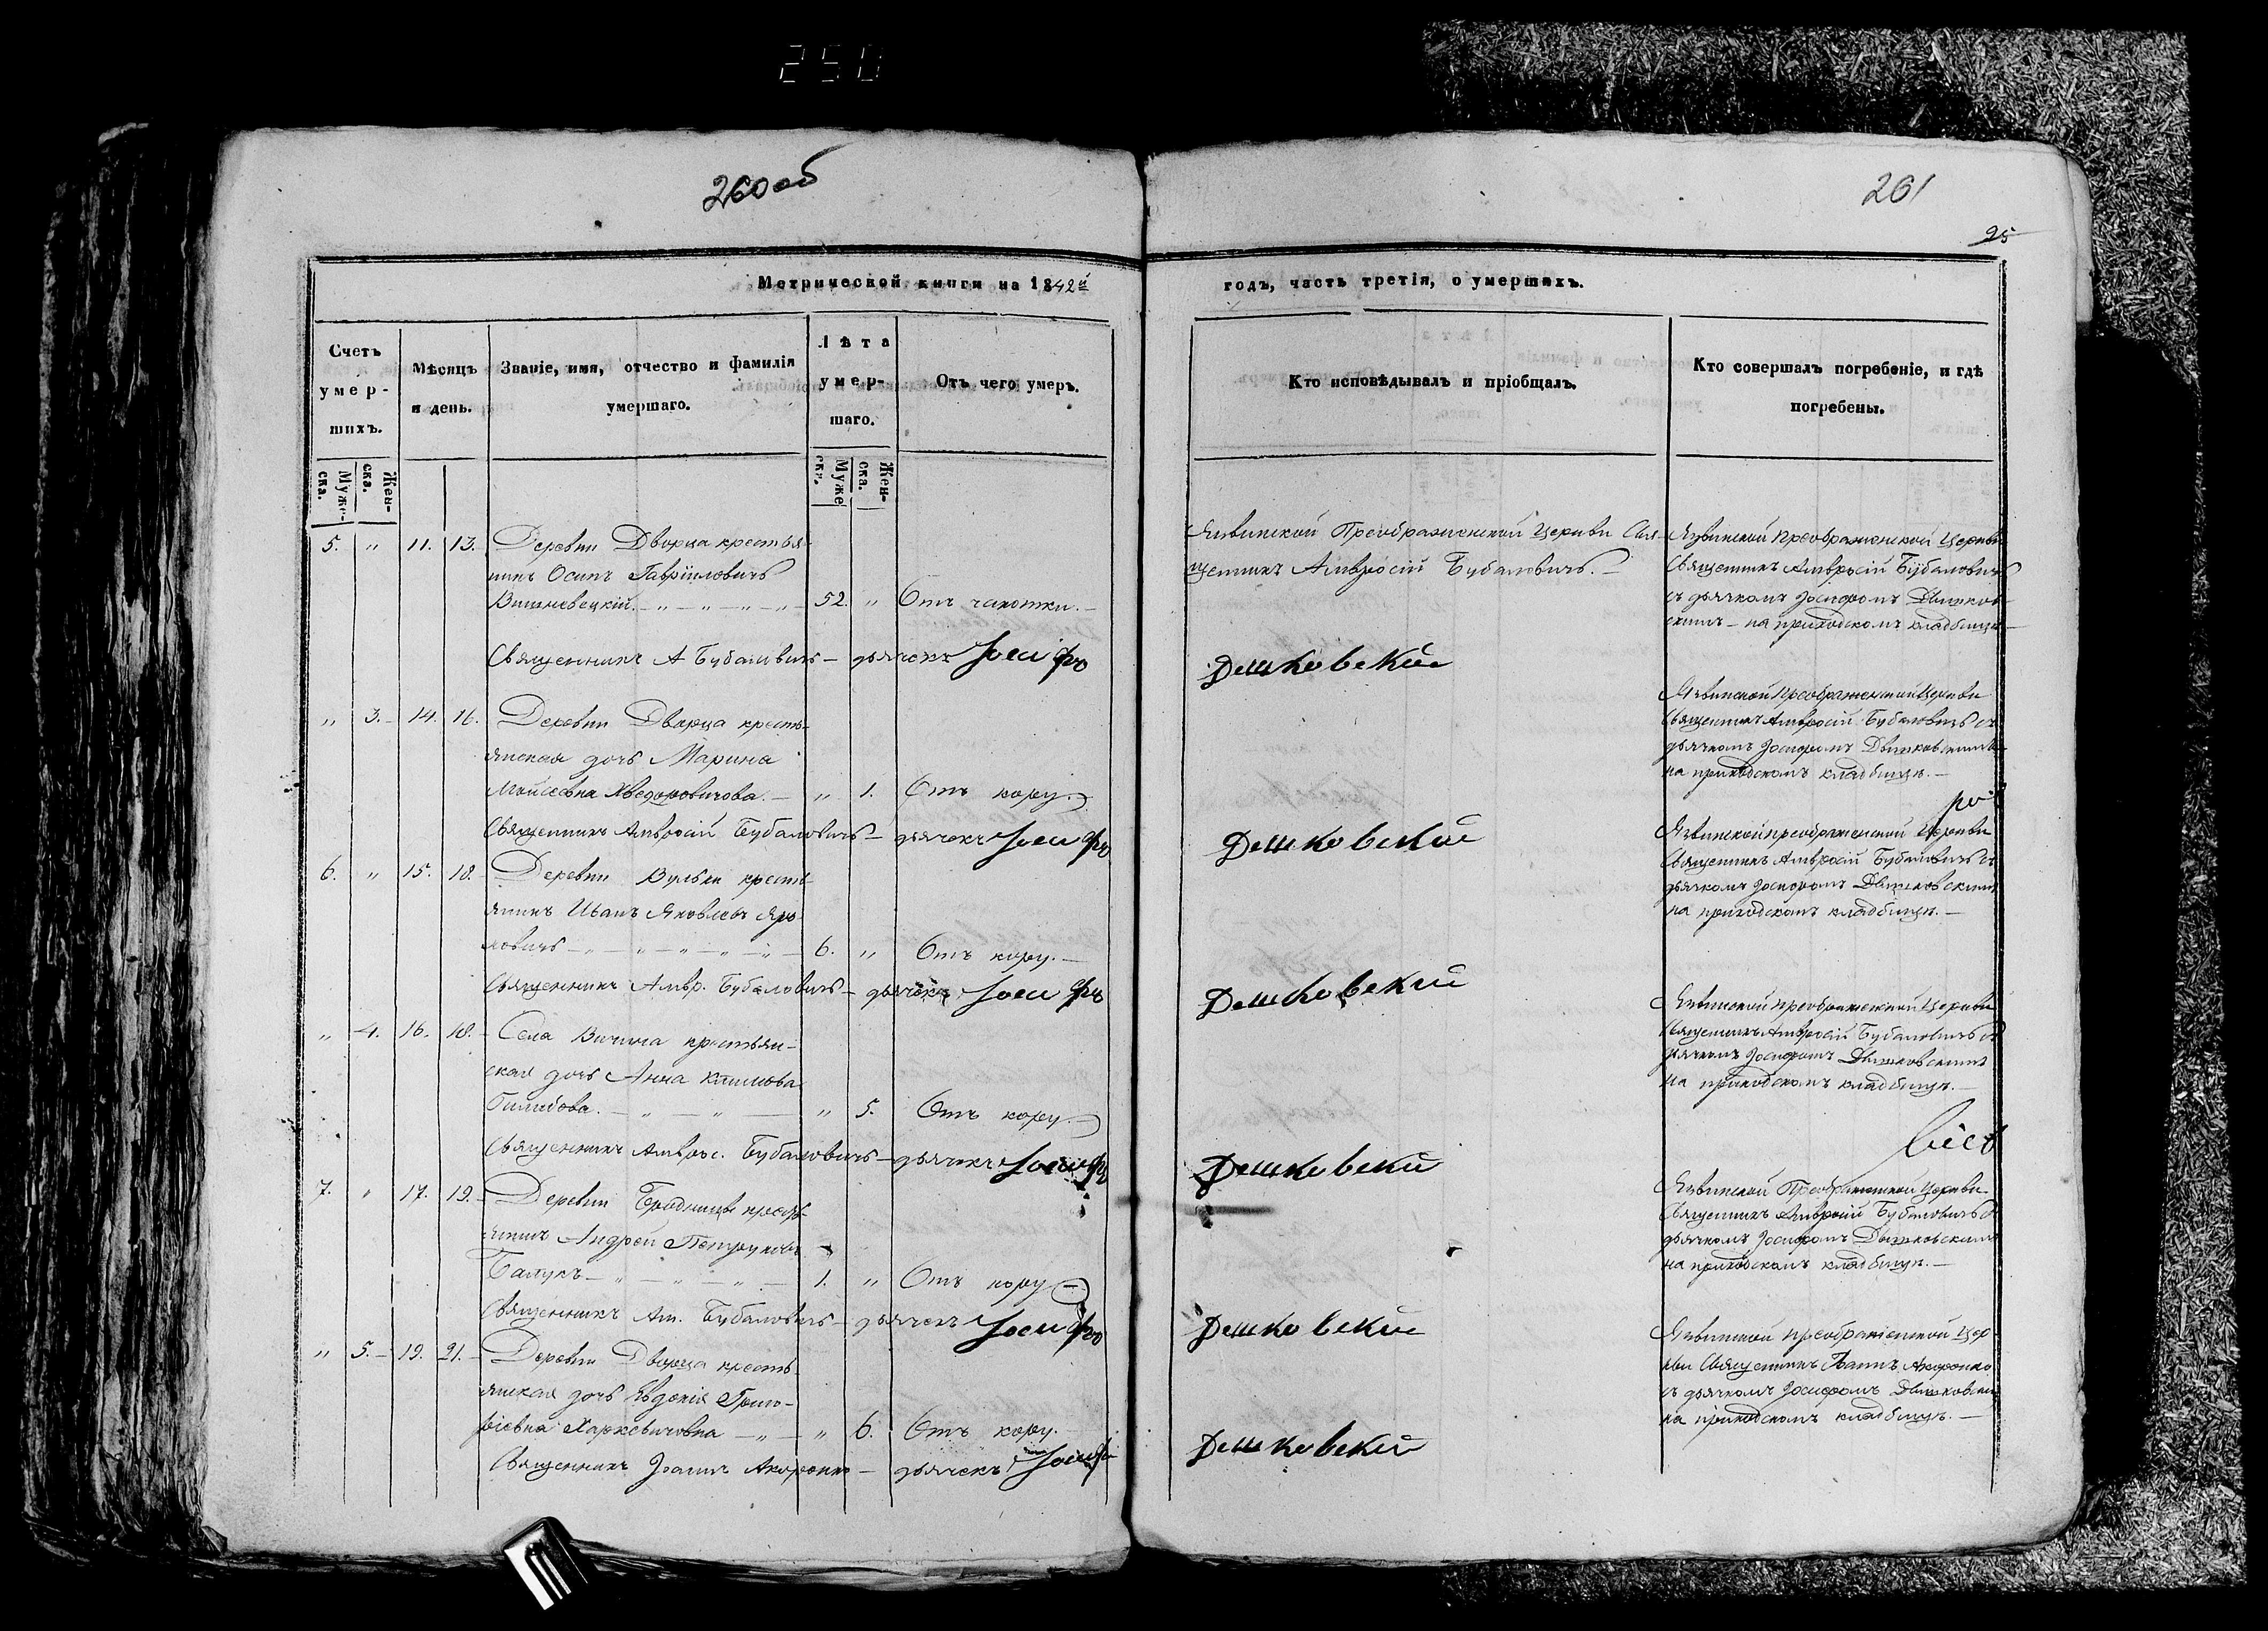 250
260 об
261
95
Метрической книги на 1842й
годъ, часть третія, о умершихъ.
Счетъ умер-шихъ.
Мѣсяцъ и день.
Званіе, имя, отчество и фамилія умершаго.
Лѣта умер-шаго.
Отъ чего умеръ.
Кто исповѣдывалъ и пріобщалъ.
Кто совершалъ погребеніе, и гдѣ погребены.
Муже-ска.
Жен-ска.
Муже ск.
Жен-ска.
5. " 11. 13. Деревни Дворца крестья-
нинъ Осипъ Гавріиловичъ
Вишневецкій. 52. " Отъ чахотки.
Преображенской Церкви Свя-
щенникъ Амвросій Бубаловичъ.
Преображенской Церкви
Священникъ Амвросій Бубаловичъ
съ дьячкомъ Іосифомъ
на приходскомъ кладбищѣ
Священникъ А Бубаловичъ – дьячекъ Іосифъ Дешковскій
" 3. 14. 16. Деревни Дворца кресть-
янская дочь Марина
Моисеевна Хведоровичова. " 1. Отъ кору.
Преображенской Церкви
Священникъ Амвросій Бубаловичъ съ
дьячкомъ Іосифомъ
на приходскомъ кладбищѣ.
Священникъ Амвросій Бубаловичъ – дьячекъ Іосифъ Дешковскій
6. " 15. 18. Деревни Вульки кресть-
янинъ Иванъ Яковлевъ Яро-
ловичъ 6. " Отъ кору.
преображенской Церкви
Священникъ Амвросій Бубаловичъ съ
дьячкомъ Іосифомъ
на приходскомъ кладбищѣ.
Священникъ Амвр. Бубаловичъ – дьячекъ Іосифъ Дешковскій
" 4. 16. 18. Села Вичина крестьян-
ская дочь Анна Климова
" 5. Отъ кору.
преображенской Церкви
Священникъ Амвросій Бубаловичъ съ
дьячкомъ Іосифомъ
на приходскомъ кладбищѣ.
Священникъ Амврос. Бубаловичъ – дьячекъ Іосифъ Дешковскій
7. " 17. 19. Деревни кресть-
янинъ Андрей
1. " Отъ кору
Преображенской Церкви
Священникъ Амвросій Бубаловичъ съ
дьячкомъ Іосифомъ
на приходскомъ кладбищѣ.
Священникъ Ам. Бубаловичъ – дьячекъ Іосифъ Дешковскій
" 5. 19. 21. Деревни Дворца кресть-
янская дочь Евдокія Григо-
ріевна Харкевичовна " 6. Отъ кору.
преображенской Цер-
кви Священникъ Іоаннъ
съ дьячкомъ Іосифомъ
на приходскомъ кладбищѣ.
Священникъ Іоаннъ – дьячекъ Іосифъ Дешковскій